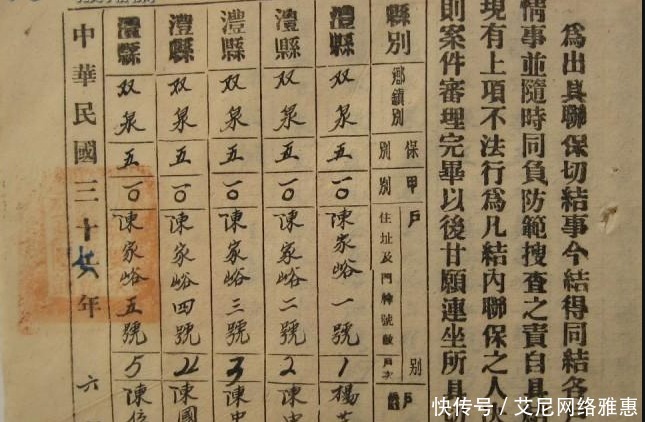 為出具聯保切結事今結得同結各戶
情事並隨時同負防範搜查之責自具
現有上項不法行為凡結內聯保之人
則案件審理完畢以後甘願連坐所具
縣別 鄉鎮別 保別 甲別 戶別 住址及門牌號數 戶次 戶
澧縣 双泉 五 一〇 陳家峪一號 1 楊
澧縣 双泉 五 一〇 陳家峪二號 2 陳
澧縣 双泉 五 一〇 陳家峪三號 3 陳
澧縣 双泉 五 一〇 陳家峪四號 4 陳國
澧縣 双泉 五 一〇 陳家峪五號 5 陳
中華民國三十年六
快传号/艾尼网络雅惠